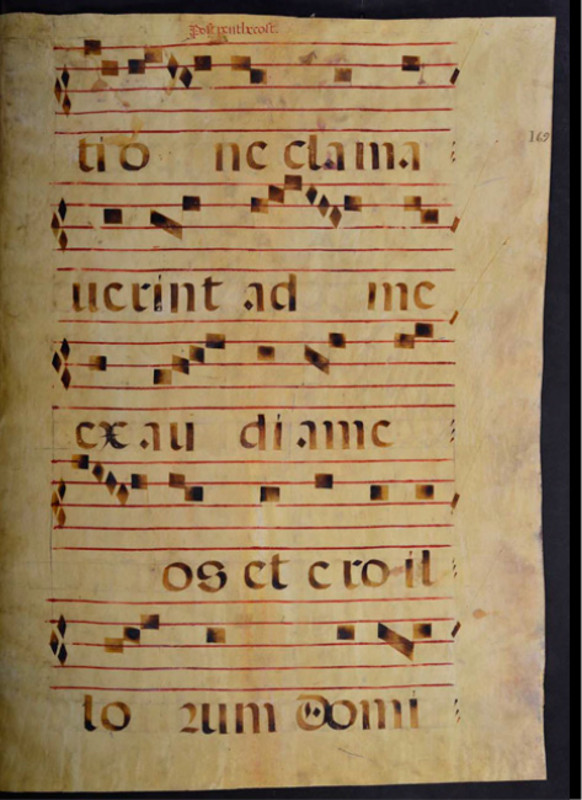 Post pentecost.
169
tio ne clama
uerint ad me
exau diame
os et ero il
lo rum Domi